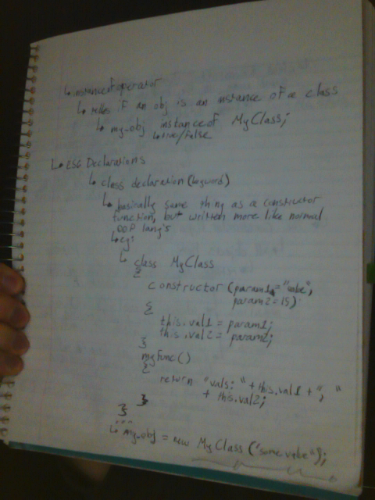 ↳ instanceof operator
↳ tells if an obj is an instance of a class
↳ my.obj instanceof MyClass;
↳ true/false
↳ ES6 Declarations
↳ class declaration (keyword)
↳ basically same thing as a constructor
function, but written more like normal
OOP lang's
↳ eg:
↳ class MyClass
{
constructor (param1="value",
param2=15)
{
this.val1 = param1;
this.val2 = param2;
}
myfunc()
{
return "vals: " + this.val1 + ", "
+ this.val2;
}
}
...
↳ my.obj = new MyClass("some value");